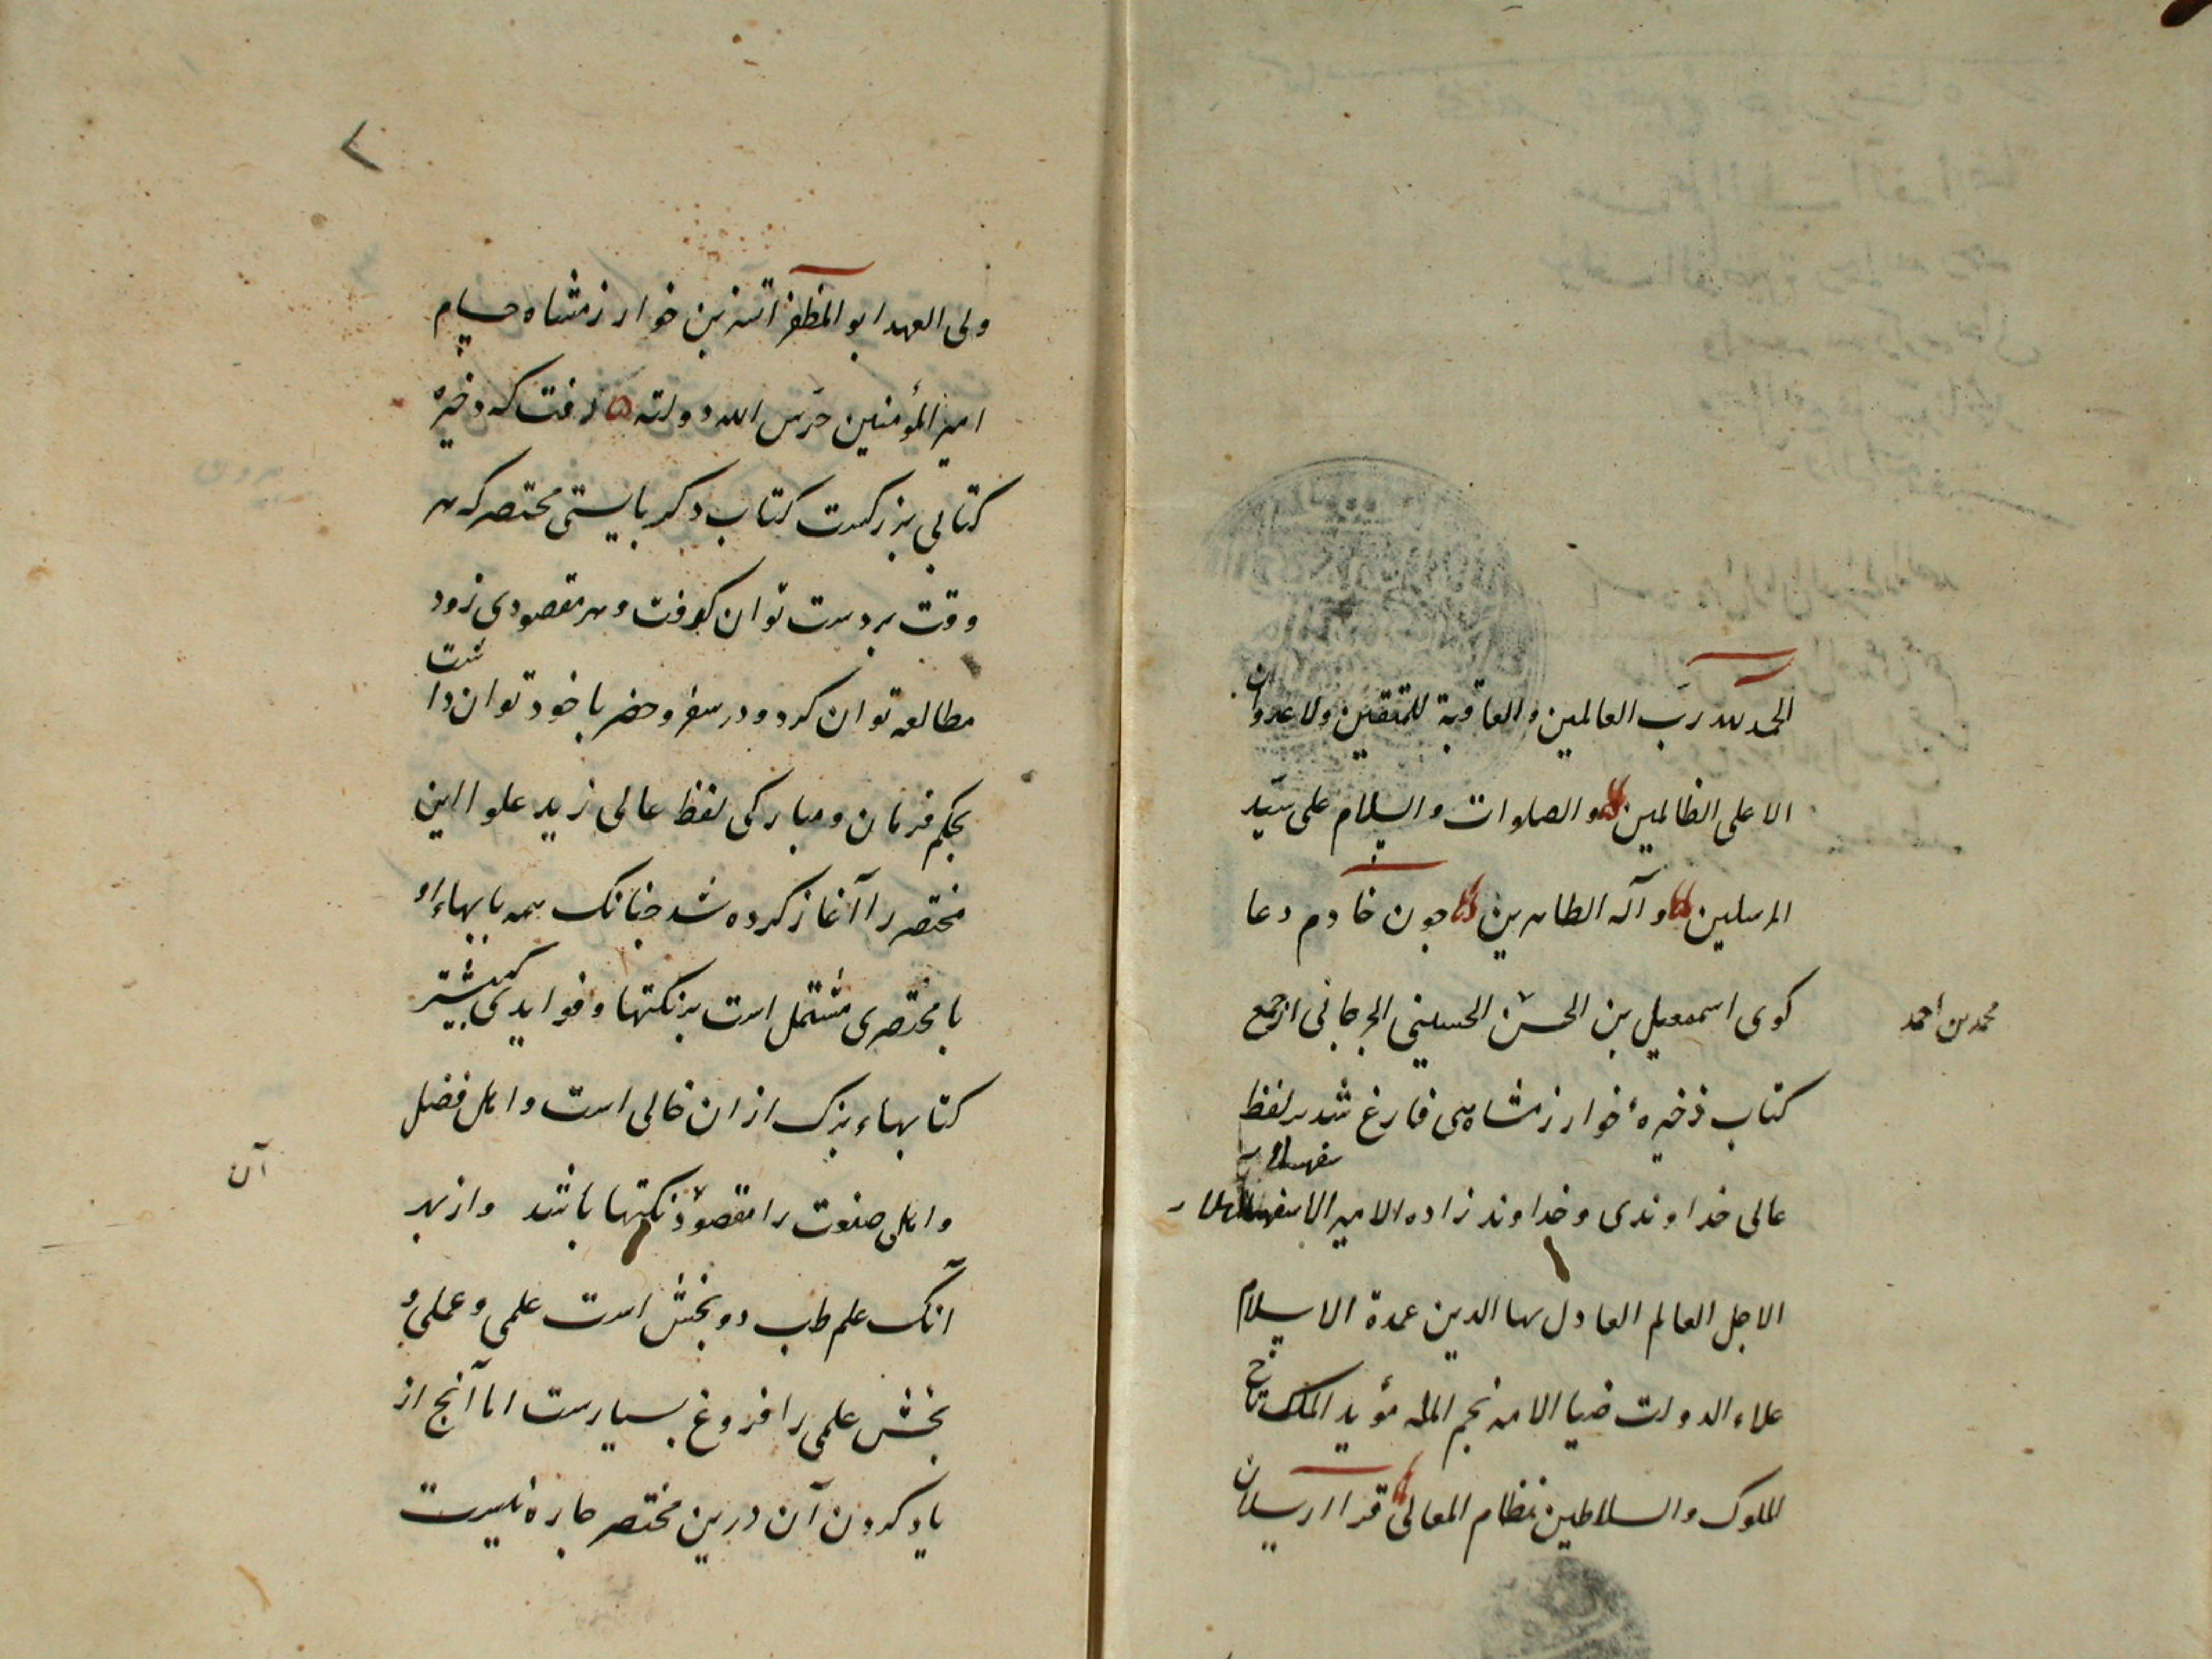 الحمد لله رب العالمین والعاقبة للمتقین ولا عدوان
الا علی الظالمین والصلوات والسلام علی سید
المرسلین و آله الطاهرین جون خادم دعا
کوی اسمعیل بن الحسن الحسینی الجرجانی از جمع
محمد بن احمد
کتاب ذخیرهٔ خوارزمشاهی فارغ شد بر لفظ
عالی خداوندی و خداوند زاده الامیر الاسفهسلار
الاجل العالم العادل بها الدین عمدة الاسلام
علاء الدولت ضیا الامه نجم المله مؤید الملک تاج
الملوک والسلاطین نظام المعالی قرا ارسلان
ولی العهد ابو المظفر اتسز بن خوارزمشاه حسام
امیر المؤمنین حرس الله دولته رفت که ذخیره
کتابی بزرکست کتاب دکر بایستی مختصر که هر
وقت بر دست توان کرفت و هر مقصودی زود
مطالعه توان کرد و در سفر و حضر با خود توان داشت
بحکم فرمان و مبارکی لفظ عالی زید علوا این
مختصر را آغاز کرده شد جنانک همه بابهاء او
با مختصری مشتمل است بر نکتها و فوایدی که بیشتر
کتابهاء بزرک از ان خالی است و اهل فضل
و اهل صنعت را مقصود نکتها باشد و از بهر
آن
آنک علم طب دو بخش است علمی و عملی و
بخش علمی را فروغ بسیارست اما آنج از
یاد کردن آن درین مختصر جاره نیست